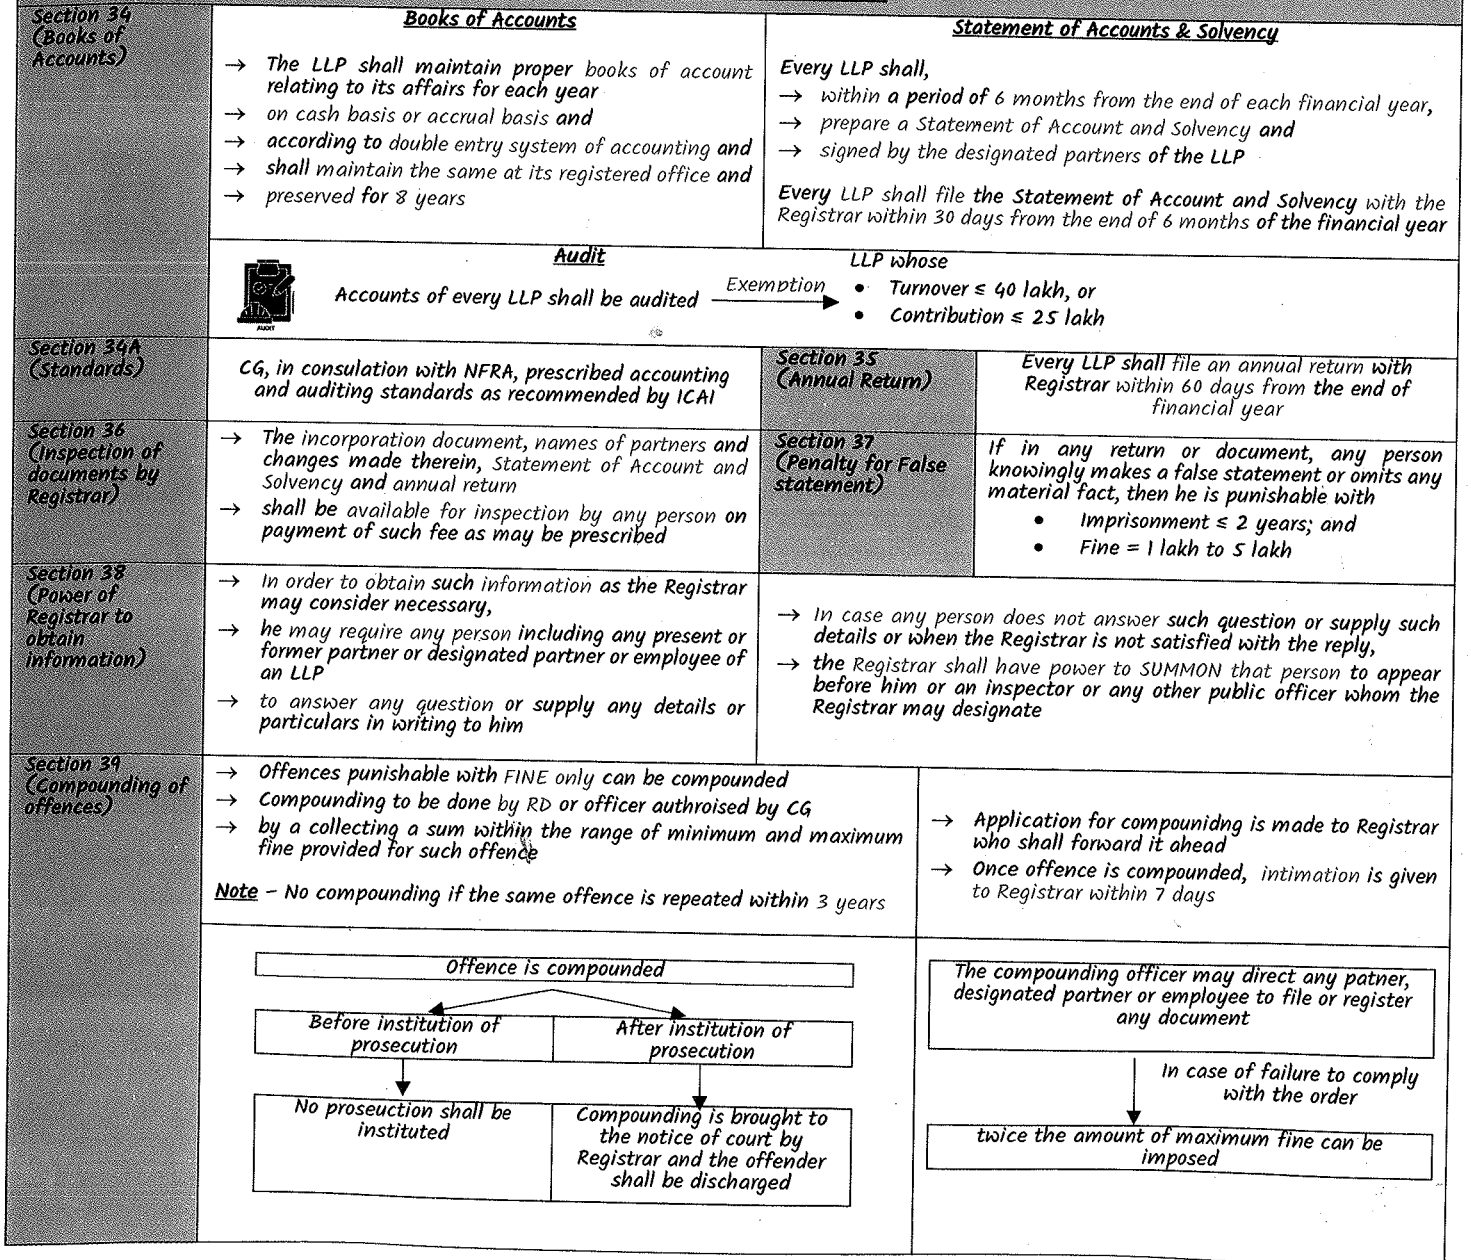 Section 34
(Books of
Accounts)
Books of Accounts
→ The LLP shall maintain proper books of account
relating to its affairs for each year
→ on cash basis or accrual basis and
→ according to double entry system of accounting and
→ shall maintain the same at its registered office and
→ preserved for 8 years
Statement of Accounts & Solvency
Every LLP shall,
→ within a period of 6 months from the end of each financial year,
→ prepare a Statement of Account and Solvency and
→ signed by the designated partners of the LLP
Every LLP shall file the Statement of Account and Solvency with the
Registrar within 30 days from the end of 6 months of the financial year
Audit
AUDIT
Accounts of every LLP shall be audited
Exemption
LLP whose
• Turnover ≤ 40 lakh, or
• Contribution ≤ 25 lakh
Section 34A
(Standards)
CG, in consulation with NFRA, prescribed accounting
and auditing standards as recommended by ICAI
Section 35
(Annual Return)
Every LLP shall file an annual return with
Registrar within 60 days from the end of
financial year
Section 36
(Inspection of
documents by
Registrar)
→ The incorporation document, names of partners and
changes made therein, Statement of Account and
Solvency and annual return
→ shall be available for inspection by any person on
payment of such fee as may be prescribed
Section 37
(Penalty for False
statement)
If in any return or document, any person
knowingly makes a false statement or omits any
material fact, then he is punishable with
• Imprisonment ≤ 2 years; and
• Fine = 1 lakh to 5 lakh
Section 38
(Power of
Registrar to
obtain
information)
→ In order to obtain such information as the Registrar
may consider necessary,
→ he may require any person including any present or
former partner or designated partner or employee of
an LLP
→ to answer any question or supply any details or
particulars in writing to him
→ In case any person does not answer such question or supply such
details or when the Registrar is not satisfied with the reply,
→ the Registrar shall have power to SUMMON that person to appear
before him or an inspector or any other public officer whom the
Registrar may designate
Section 39
(Compounding of
offences)
→ Offences punishable with FINE only can be compounded
→ Compounding to be done by RD or officer authroised by CG
→ by a collecting a sum within the range of minimum and maximum
fine provided for such offence
Note – No compounding if the same offence is repeated within 3 years
→ Application for compounidng is made to Registrar
who shall forward it ahead
→ Once offence is compounded, intimation is given
to Registrar within 7 days
Offence is compounded
Before institution of
prosecution
After institution of
prosecution
No proseuction shall be
instituted
Compounding is brought to
the notice of court by
Registrar and the offender
shall be discharged
The compounding officer may direct any patner,
designated partner or employee to file or register
any document
In case of failure to comply
with the order
twice the amount of maximum fine can be
imposed